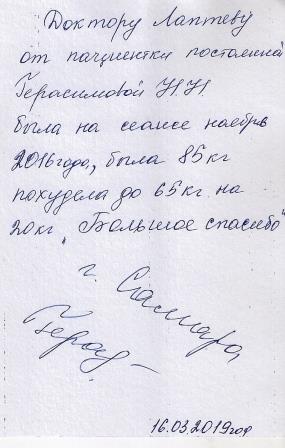 Доктору Лаптеву
от пациентки постоянной
Герасимовой Н.Н.
была на сеансе ноебрь
2016 года, была 85 кг
похудела до 65 кг. на
20 кг. „Большое спасибо"
г. Самара,
Герас
16.03.2019 год